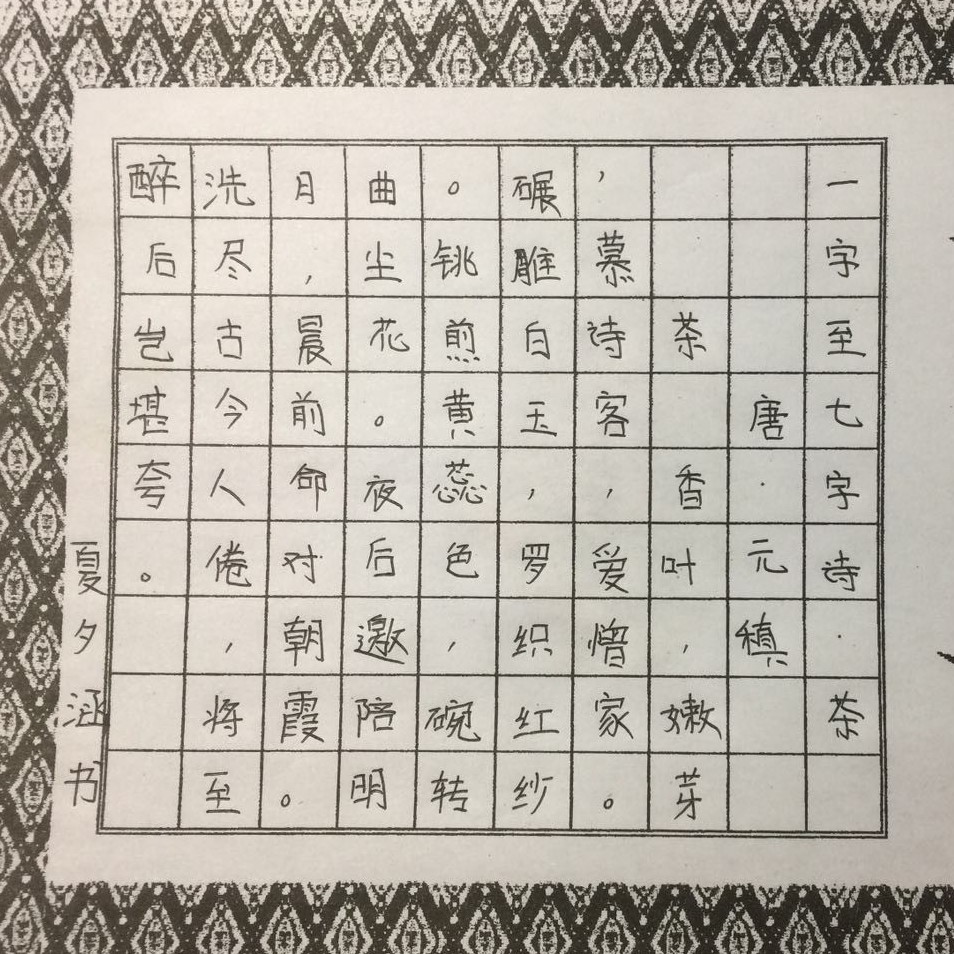 一字至七字诗·茶
唐·元稹
茶 香叶，嫩芽
，慕诗客，爱憎家。
碾雕白玉，罗织红纱
。铫煎黄蕊色，碗转
曲尘花。夜后邀陪明
月，晨前命对朝霞。
洗尽古今人倦，将至
醉后岂堪夸。
夏夕涵书